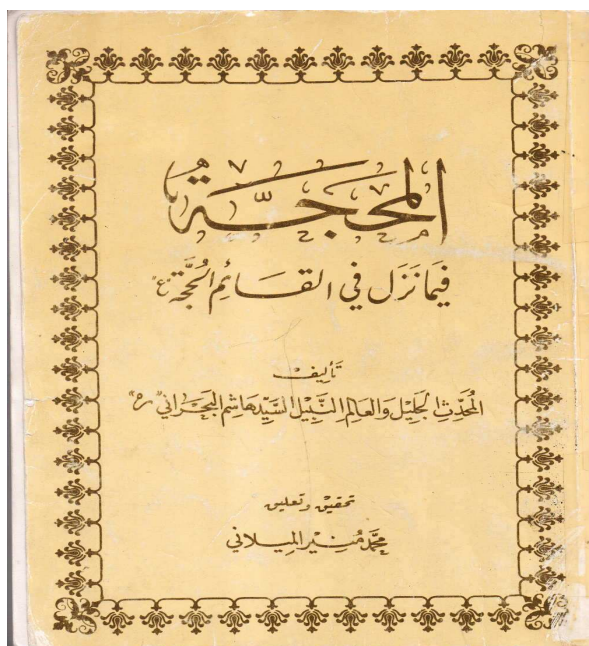 المحَجَّة
فيمَا نَزَل في القَائِم الحُجَّة "ع"
تأليف
المُحَدِّث الجَليْل وَالعَالِم النَّبيْل السَّيِّد هَاشِم البَحْرَاني "ره"
تحقيق وتعليق
محمَّد مُنير الميلاني